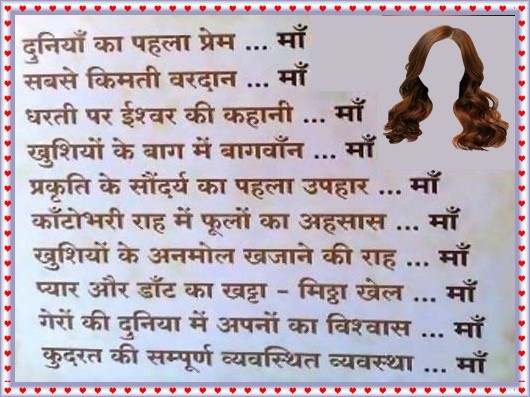 दुनियाँ का पहला प्रेम ... माँ
सबसे किमती वरदान ... माँ
धरती पर ईश्वर की कहानी ... माँ
खुशियों के बाग में बागवाँन ... माँ
प्रकृति के सौंदर्य का पहला उपहार ... माँ
काँटोभरी राह में फूलों का अहसास ... माँ
खुशियों के अनमोल खजाने की राह ... माँ
प्यार और डाँट का खट्टा - मिठ्ठा खेल ... माँ
गेरों की दुनिया में अपनों का विश्वास ... माँ
कुदरत की सम्पूर्ण व्यवस्थित व्यवस्था ... माँ